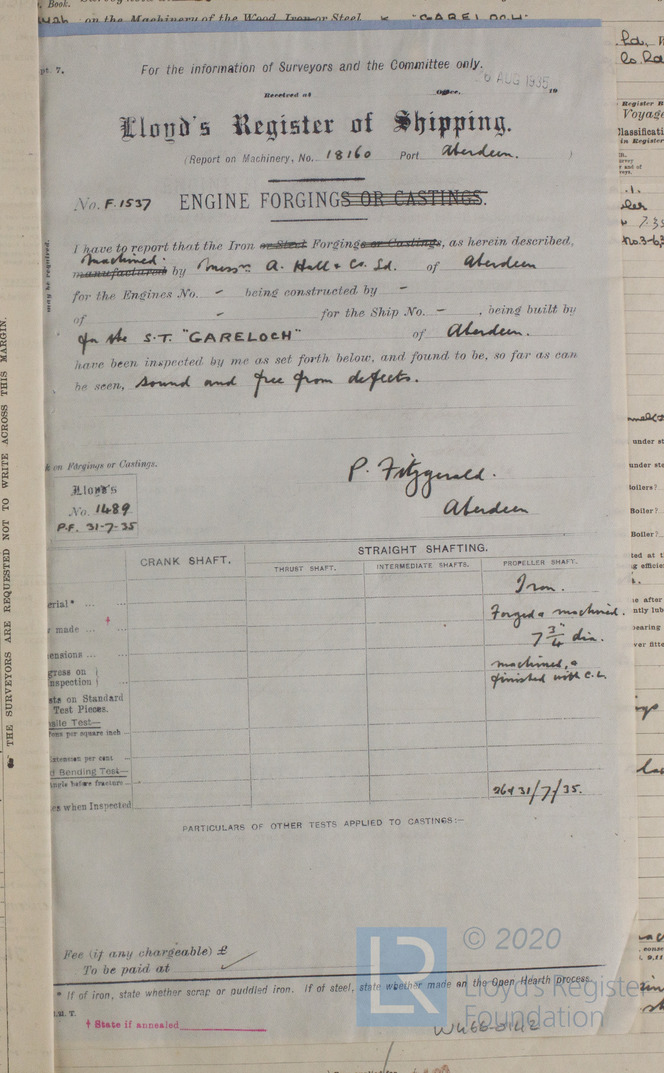 Book.
on the Machinery of the Wood, Iron or Steel "GARELOCH"
For the information of Surveyors and the Committee only.
6 AUG 1935
Received at Office, 19
Lloyd's Register of Shipping.
(Report on Machinery, No. 18160 Port Aberdeen. )
No. F.1537 ENGINE FORGINGS OR CASTINGS.
I have to report that the Iron or Steel Forgings or Castings, as herein described,
machined
manufactured by Messrs A. Hall & Co. Ld. of Aberdeen
for the Engines No. - being constructed by -
of - for the Ship No. - , being built by
for the S.T. "GARELOCH" of Aberdeen.
have been inspected by me as set forth below, and found to be, so far as can
be seen, sound and free from defects.
may be required.
THE SURVEYORS ARE REQUESTED NOT TO WRITE ACROSS THIS MARGIN.
k on Forgings or Castings.
Lloyd's
No. 1489
P.F. 31-7-35
P. Fitzgerald.
Aberdeen
CRANK SHAFT.
STRAIGHT SHAFTING.
THRUST SHAFT. INTERMEDIATE SHAFTS. PROPELLER SHAFT.
erial* ... Iron.
r made ... † Forged & machined.
ensions ... 7 3/4" dia.
gress on
nspection machined, &
finished with C.L.
sts on Standard
Test Pieces.
sile Test—
Tons per square inch
Extension per cent
d Bending Test—
angle before fracture
es when Inspected 26 & 31/7/35.
PARTICULARS OF OTHER TESTS APPLIED TO CASTINGS:—
Fee (if any chargeable) £
To be paid at
* If of iron, state whether scrap or puddled iron. If of steel, state whether made on the Open Hearth process.
† State if annealed
© 2020
LR
Lloyd's Register
Foundation
W466-0142